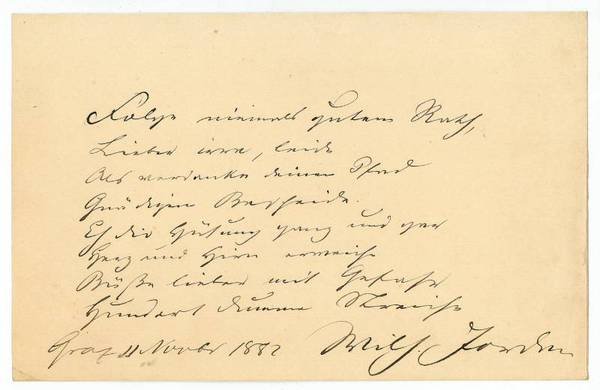 Folge niemals gutem Rath,
Lieber irre, leide
Als verdanke deinen Pfad
Gnädigem Bescheide.
Eh die Hütung ganz und gar
Herz und Hirn erweiche
Büße lieber mit Gefahr
Hundert dumme Streiche
Graz 11 Novbr 1882 Wilh. Jordan